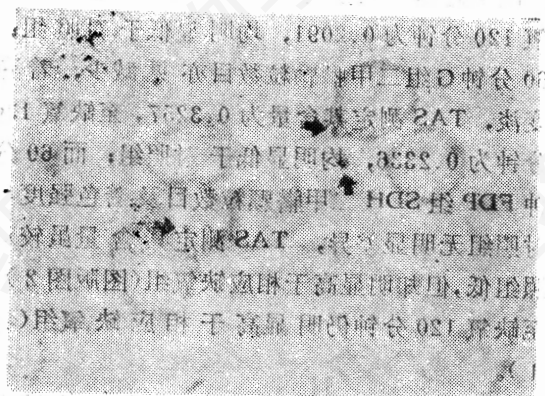 120 分钟为 0.2091, 均明显低于对照组,
60 分钟 G 组二甲 颗粒数目亦显减少、着
变淡, TAS 测定其含量为 0.3257, 至缺氧 1
分钟为 0.2336, 均明显低于对照组; 而 60
钟 FDP 组 SDH 甲 颗粒数目、着色强度
对照组无明显差异, TAS 测定其含量虽较
照组低,但却明显高于相应缺氧组(图版图 2)
至缺氧 120 分钟仍明显高于相应缺氧组(
1)。